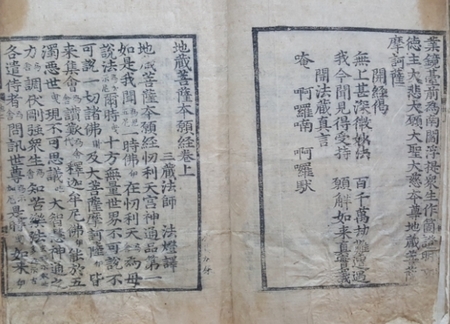 業鏡臺前為南閻浮提衆生作箇證明
德主大悲大願大聖大慈本尊地藏菩薩
摩訶薩
開經偈
無上甚深微妙法 百千萬劫難遭遇
我今聞見得受持 願解如來真實義
開法藏真言
唵 阿囉喃 阿囉馱
地藏菩薩本願經卷上
三藏法師 法燈譯
地藏菩薩本願經忉利天宮神通品第一
如是我聞一時佛在忉利天為母
說法爾時十方無量世界不可說不
可說一切諸佛及大菩薩摩訶薩皆
來集會讚歎釋迦牟尼佛能於五
濁惡世現不可思議大智慧神通之
力調伏剛強衆生知苦樂法
各遣侍者問訊世尊是時如來